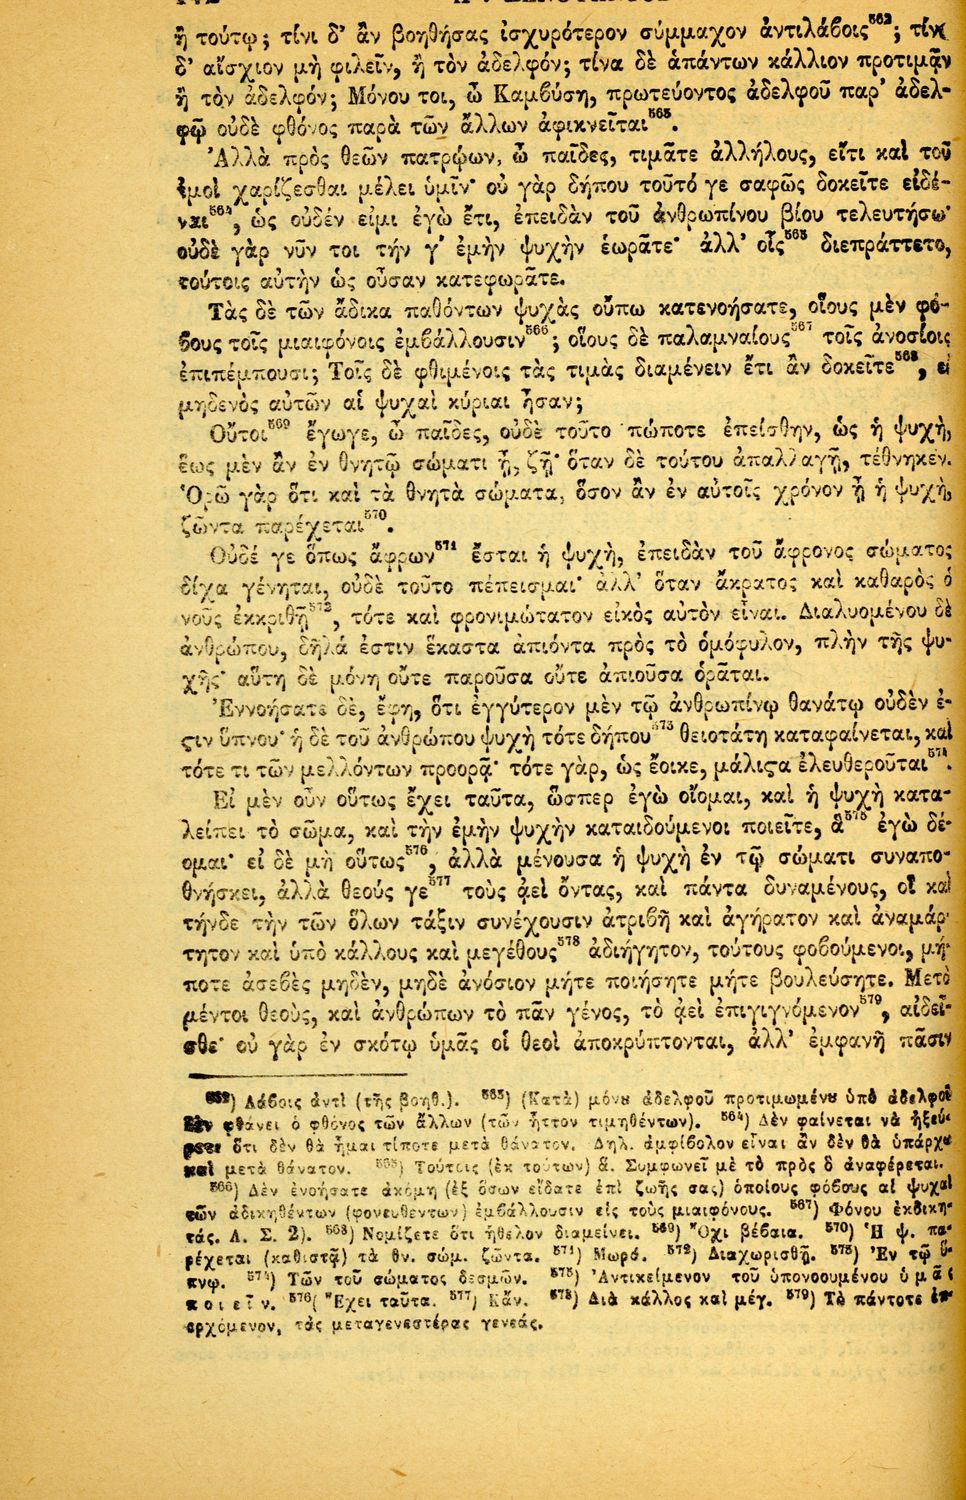 ἢ τούτῳ; τίνι δ' ἂν βοηθήσας ἰσχυρότερον σύμμαχον ἀντιλάβοις⁵⁶²; τίνα
δ' αἴσχιον μὴ φιλεῖν, ἢ τὸν ἀδελφόν; τίνα δὲ ἁπάντων κάλλιον προτιμᾷν
ἢ τὸν ἀδελφόν; Μόνου τοι, ὦ Καμβύση, πρωτεύοντος ἀδελφοῦ παρ' ἀδελ-
φῷ οὐδὲ φθόνος παρὰ τῶν ἄλλων ἀφικνεῖται⁵⁶³.
Ἀλλὰ πρὸς θεῶν πατρῴων, ὦ παῖδες, τιμᾶτε ἀλλήλους, εἴτι καὶ τοῦ
ἐμοὶ χαρίζεσθαι μέλει ὑμῖν· οὐ γὰρ δήπου τοῦτό γε σαφῶς δοκεῖτε εἰδέ-
ναι⁵⁶⁴, ὡς οὐδέν εἰμι ἐγὼ ἔτι, ἐπειδὰν τοῦ ἀνθρωπίνου βίου τελευτήσω·
οὐδὲ γὰρ νῦν τοι τήν γ' ἐμὴν ψυχὴν ἑωρᾶτε· ἀλλ' οἷς⁵⁶⁵ διεπράττετο,
τούτοις αὐτὴν ὡς οὖσαν κατεφωρᾶτε.
Τὰς δὲ τῶν ἄδικα παθόντων ψυχὰς οὔπω κατενοήσατε, οἵους μὲν φό-
βους τοῖς μιαιφόνοις ἐμβάλλουσιν⁵⁶⁶; οἵους δὲ παλαμναίους⁵⁶⁷ τοῖς ἀνοσίοις
ἐπιπέμπουσι; Τοῖς δὲ φθιμένοις τὰς τιμὰς διαμένειν ἔτι ἂν δοκεῖτε⁵⁶⁸, εἰ
μηδενὸς αὐτῶν αἱ ψυχαὶ κύριαι ἦσαν;
Οὔτοι⁵⁶⁹ ἔγωγε, ὦ παῖδες, οὐδὲ τοῦτο πώποτε ἐπείσθην, ὡς ἡ ψυχὴ,
ἕως μὲν ἂν ἐν θνητῷ σώματι ᾖ, ζῇ· ὅταν δὲ τούτου ἀπαλλαγῇ, τέθνηκεν.
Ὁρῶ γὰρ ὅτι καὶ τὰ θνητὰ σώματα, ὅσον ἂν ἐν αὐτοῖς χρόνον ᾖ ἡ ψυχὴ,
ζῶντα παρέχεται⁵⁷⁰.
Οὐδέ γε ὅπως ἄφρων⁵⁷¹ ἔσται ἡ ψυχὴ, ἐπειδὰν τοῦ ἄφρονος σώματος
δίχα γένηται, οὐδὲ τοῦτο πέπεισμαι· ἀλλ' ὅταν ἄκρατος καὶ καθαρὸς ὁ
νοῦς ἐκκριθῇ⁵⁷², τότε καὶ φρονιμώτατον εἰκὸς αὐτὸν εἶναι. Διαλυομένου δὲ
ἀνθρώπου, δῆλά ἐστιν ἕκαστα ἀπιόντα πρὸς τὸ ὁμόφυλον, πλὴν τῆς ψυ-
χῆς· αὕτη δὲ μόνη οὔτε παροῦσα οὔτε ἀπιοῦσα ὁρᾶται.
Ἐννοήσατε δὲ, ἔφη, ὅτι ἐγγύτερον μὲν τῷ ἀνθρωπίνῳ θανάτῳ οὐδὲν ἐ-
ςιν ὕπνου· ἡ δὲ τοῦ ἀνθρώπου ψυχὴ τότε δήπου⁵⁷³ θειοτάτη καταφαίνεται, καὶ
τότε τι τῶν μελλόντων προορᾷ· τότε γὰρ, ὡς ἔοικε, μάλιςα ἐλευθεροῦται⁵⁷⁴.
Εἰ μὲν οὖν οὕτως ἔχει ταῦτα, ὥσπερ ἐγὼ οἴομαι, καὶ ἡ ψυχὴ κατα-
λείπει τὸ σῶμα, καὶ τὴν ἐμὴν ψυχὴν καταιδούμενοι ποιεῖτε, ἃ⁵⁷⁵ ἐγὼ δέ-
ομαι· εἰ δὲ μὴ οὕτως⁵⁷⁶, ἀλλὰ μένουσα ἡ ψυχὴ ἐν τῷ σώματι συναπο-
θνήσκει, ἀλλὰ θεούς γε⁵⁷⁷ τοὺς ἀεὶ ὄντας, καὶ πάντα δυναμένους, οἳ καὶ
τήνδε τὴν τῶν ὅλων τάξιν συνέχουσιν ἀτριβῆ καὶ ἀγήρατον καὶ ἀναμάρ-
τητον καὶ ὑπὸ κάλλους καὶ μεγέθους⁵⁷⁸ ἀδιήγητον, τούτους φοβούμενοι, μή-
ποτε ἀσεβὲς μηδὲν, μηδὲ ἀνόσιον μήτε ποιήσητε μήτε βουλεύσητε. Μετὰ
μέντοι θεοὺς, καὶ ἀνθρώπων τὸ πᾶν γένος, τὸ ἀεὶ ἐπιγιγνόμενον⁵⁷⁹, αἰδεῖ-
σθε· οὐ γὰρ ἐν σκότῳ ὑμᾶς οἱ θεοὶ ἀποκρύπτονται, ἀλλ' ἐμφανῆ πᾶσιν
⁵⁶²) Λάβοις ἀντὶ (τῆς βοηθ.). ⁵⁶³) (Κατὰ) μόνȣ ἀδελφοῦ προτιμωμένȣ ὑπὸ ἀδελφοῦ
δὲν φθάνει ὁ φθόνος τῶν ἄλλων (τῶν ἧττον τιμηθέντων). ⁵⁶⁴) Δὲν φαίνεται νὰ ἠξεύ-
ρετε ὅτι δὲν θὰ ἦμαι τίποτε μετὰ θάνατον. Δηλ. ἀμφίβολον εἶναι ἂν δὲν θὰ ὑπάρχω
καὶ μετὰ θάνατον. ⁵⁶⁵) Τούτοις (ἐκ τούτων) ἃ. Συμφωνεῖ μὲ τὸ πρὸς ὃ ἀναφέρεται.
⁵⁶⁶) Δὲν ἐνοήσατε ἀκόμη (ἐξ ὅσων εἴδατε ἐπὶ ζωῆς σας) ὁποίους φόβους αἱ ψυχαὶ
τῶν ἀδικηθέντων (φονευθέντων) ἐμβάλλουσιν εἰς τοὺς μιαιφόνους. ⁵⁶⁷) Φόνου ἐκδικη-
τάς. Λ. Σ. 2). ⁵⁶⁸) Νομίζετε ὅτι ἤθελον διαμείνει. ⁵⁶⁹) Ὄχι βέβαια. ⁵⁷⁰) Ἡ ψ. πα-
ρέχεται (καθιστᾷ) τὰ θν. σώμ. ζῶντα. ⁵⁷¹) Μωρά. ⁵⁷²) Διαχωρισθῇ. ⁵⁷³) Ἐν τῷ ὕ-
πνῳ. ⁵⁷⁴) Τῶν τοῦ σώματος δεσμῶν. ⁵⁷⁵) Ἀντικείμενον τοῦ ὑπονοουμένου ὑμᾶς
ποιεῖν. ⁵⁷⁶( Ἔχει ταῦτα. ⁵⁷⁷) Κἄν. ⁵⁷⁸) Διὰ κάλλος καὶ μέγ. ⁵⁷⁹) Τὸ πάντοτε ἐπ-
ερχόμενον, τὰς μεταγενεστέρας γενεάς.